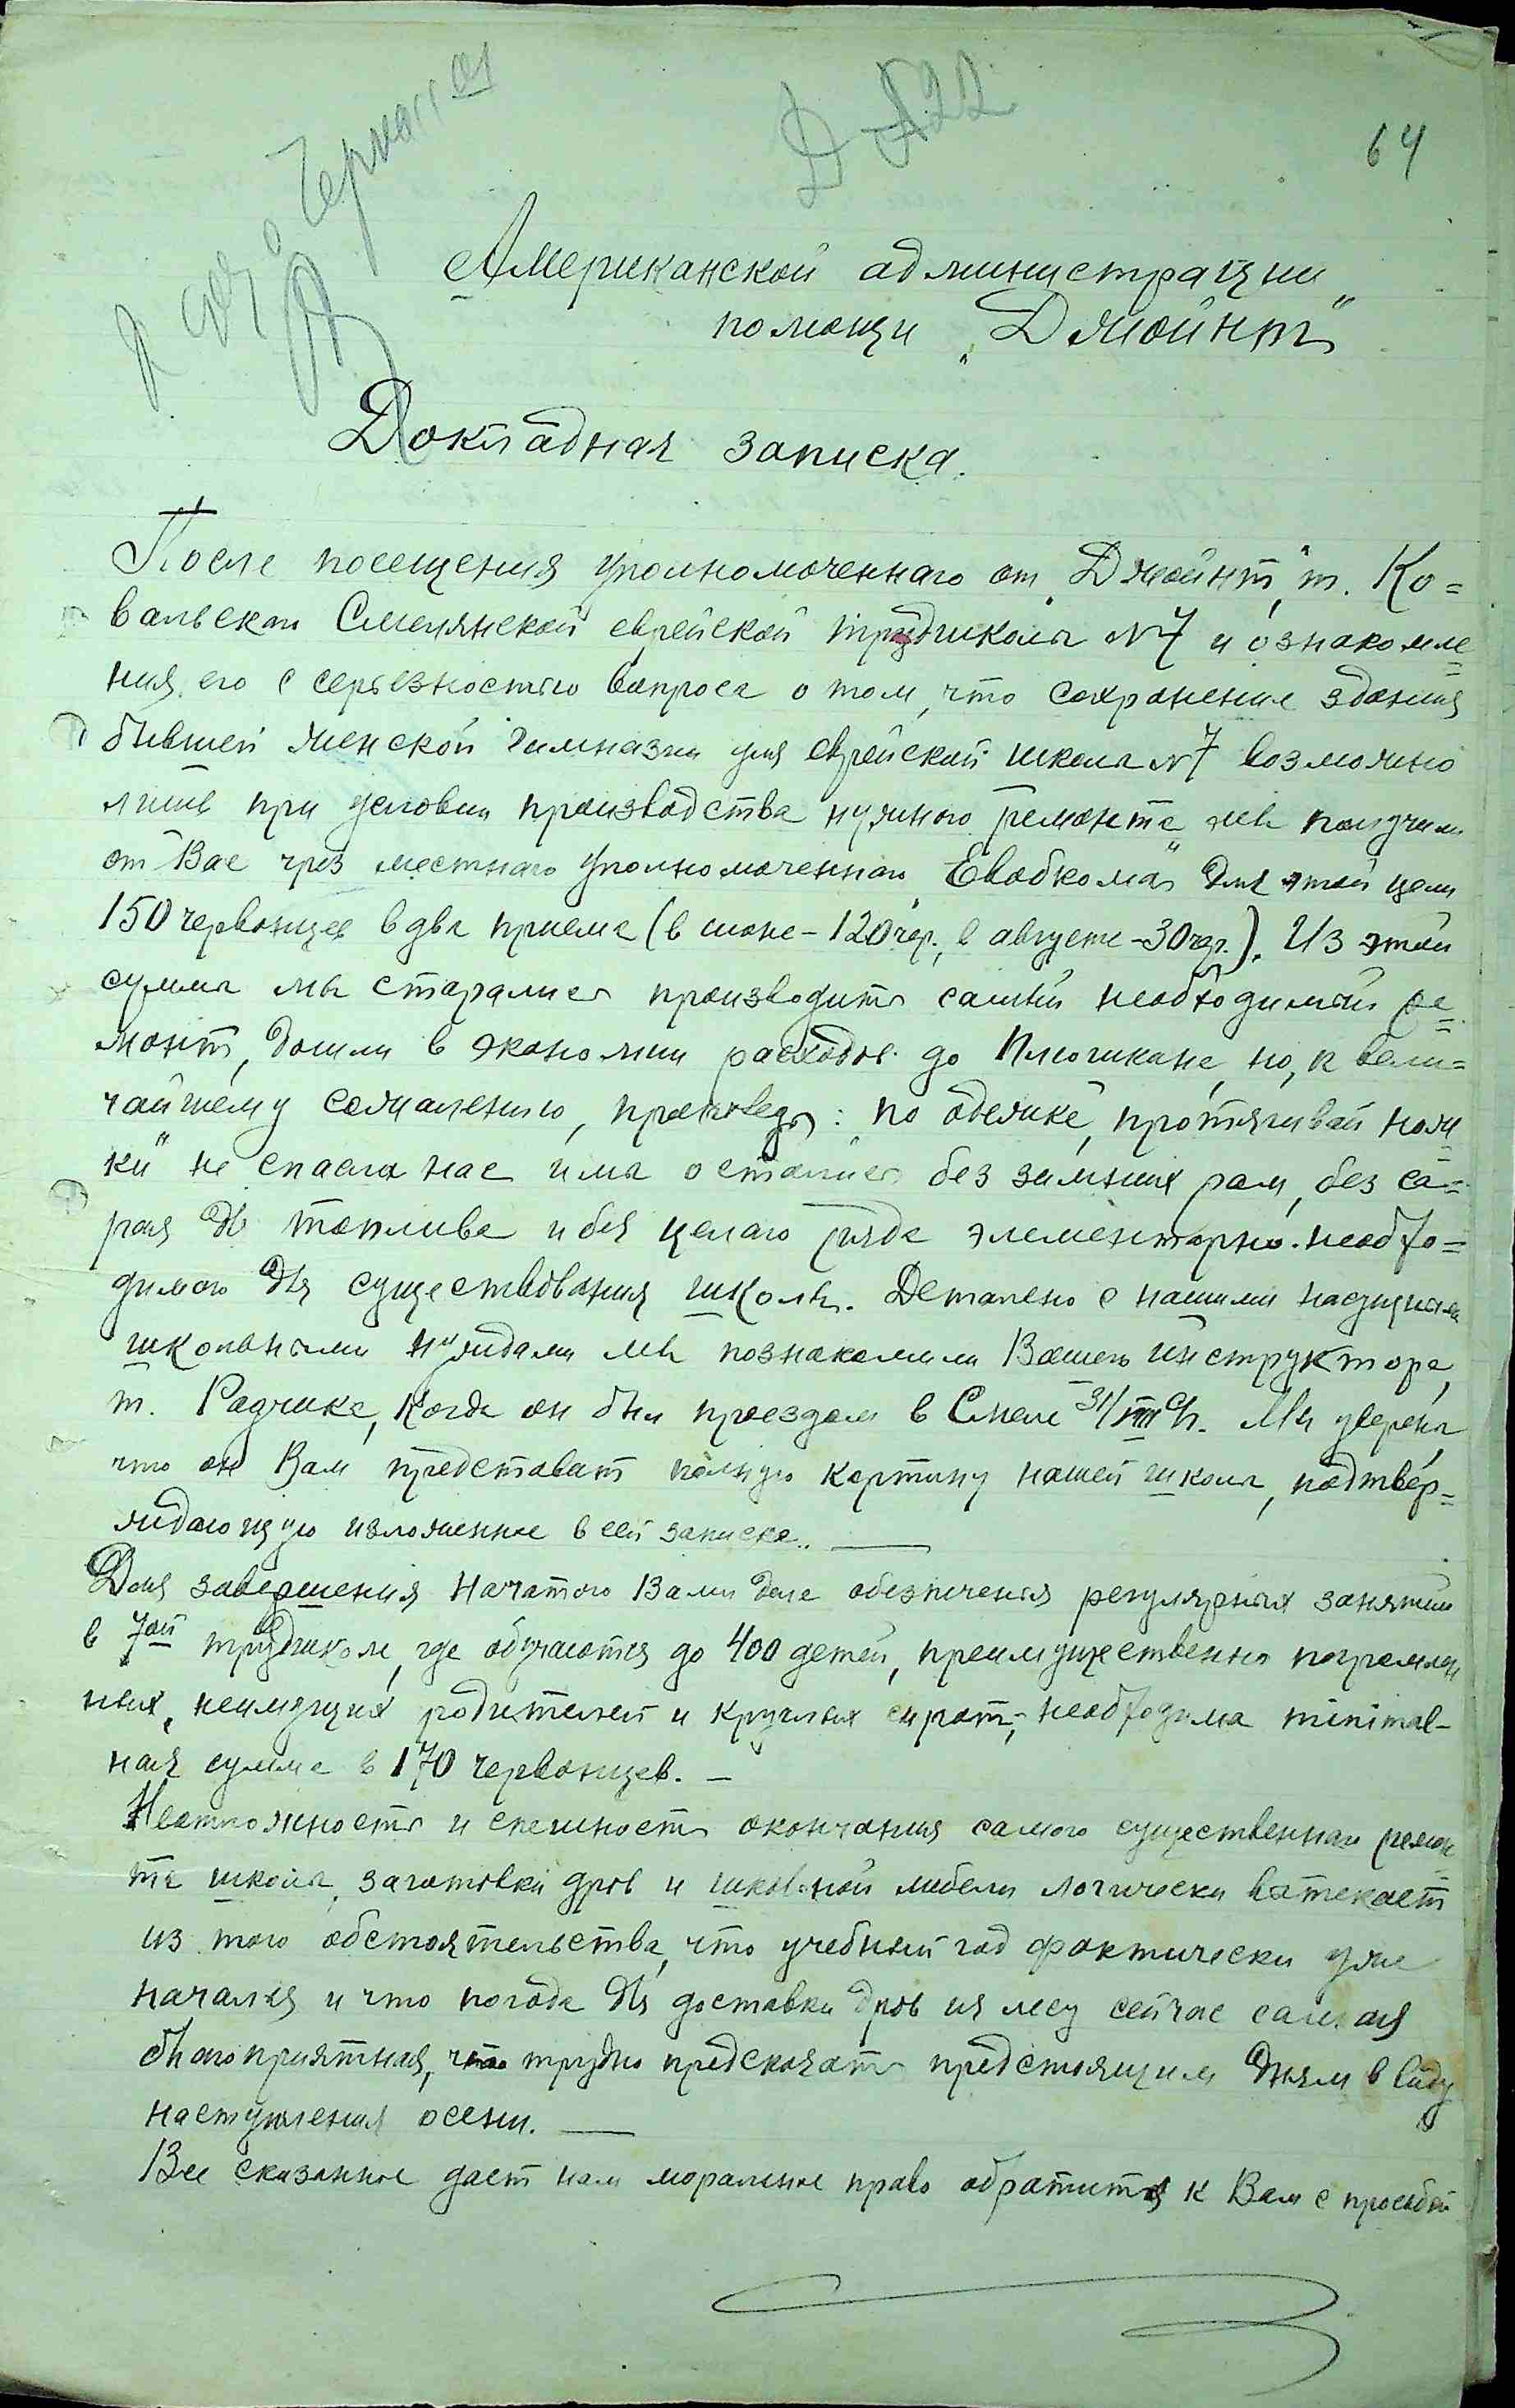 64
Американской администрации
помощи „Джойнт"
Докладная записка.
После посещения уполномоченнаго от „Джойнт", т. Ко=
вальским Смелянской еврейской трудшколы N7 и ознакомле=
ния его с серьезностью вопроса о том, что сохранение здания
бывшей женской гимназии для еврейской школы N7 возможно
лишь при условии производства нужного ремонта мы получили
от Вас чрез местнаго уполномоченнаго „Евобкома" для этой цели
150 червонцев в два приема (в июне - 120 чер., в августе - 30 чер.). Из этой
суммы мы старались производить самый необходимый ре=
монт, дошли в экономии расходов до Плюшкина, но, к вели=
чайшему сожалению, проповедь: „по одежке протягивай нож=
ки" не спасла нас и мы остались без зимних рам, без са=
рая для топлива и без целаго ряда элементарно-необхо=
димого для существования школы. Детально с нашими насущными
школьными нуждами мы познакомили Вашего инструктора,
т. Радчика, когда он был проездом в Смеле 31/VIII с/г. Мы уверены,
что он Вам представит полную картину нашей школы, подтвер=
ждающую изложенное в сей записке. —
Для завершения начатого Вами дела обезпечения регулярных занятий
в 7ой трудшколе, где обучаются до 400 детей, преимущественно погромлен
ных, неимущих родителей и круглых сирот, необходима minimal-
ная сумма в 170 червонцев. —
Неотложность и спешность окончания самого существеннаго ремон=
та школы, заготовки дров и школьной мебели логически вытекает
из того обстоятельства, что учебный год фактически уже
начался и что погода для доставки дров из лесу сейчас самая
благоприятная, что трудно предсказать предстоящим дням в виду
наступления осени. —
Все сказанное дает нам моральное право обратиться к Вам с просьбой